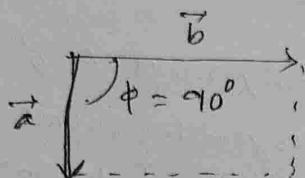 b⃗
a⃗
φ = 90°